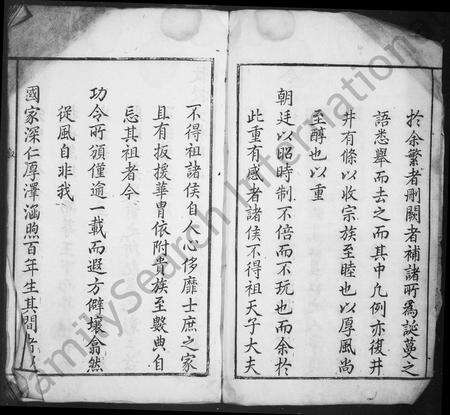 於余繁者刪闕者補諸所為誕蔓之
語悉舉而去之而其中凡例亦復井
井有條以收宗族至睦也以厚風尚
至醇也以重
朝廷以昭時制不倍而不玩也而余於
此重有感者諸侯不得祖天子大夫
不得祖諸侯自人心侈靡士庶之家
且有扳援華胄依附貴族至數典自
忘其祖者今
功令所頒僅逾一載而遐方僻壤翕然
從風自非我
國家深仁厚澤涵煦百年生其間者
FamilySearch International